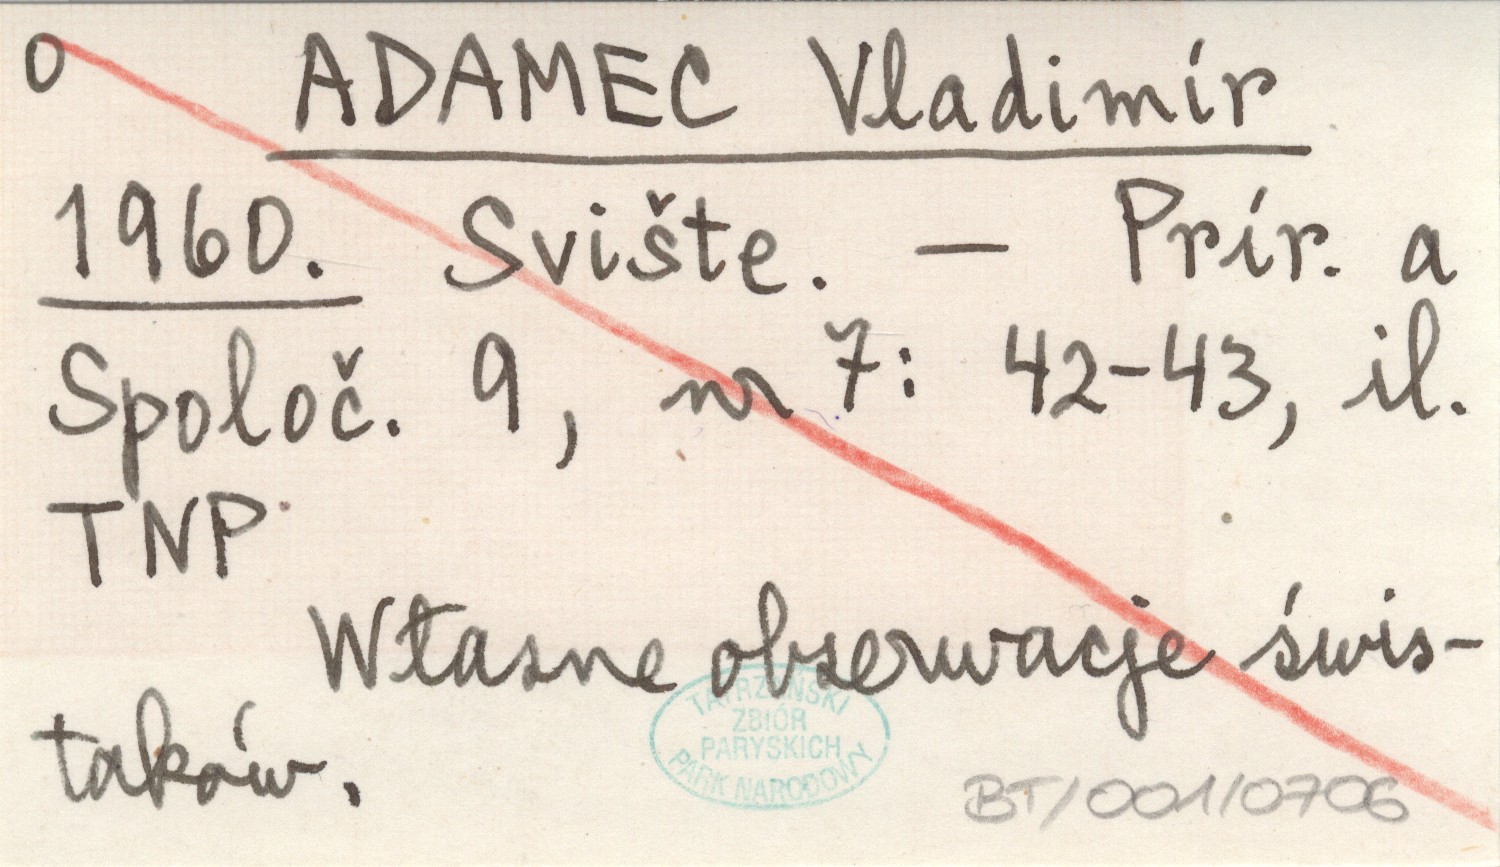 O ADAMEC Vladimír
1960. Svište. — Prír. a
Spoloč. 9, nr 7: 42-43, il.
TNP
Własne obserwacje świs-
taków.
TATRZAŃSKI
ZBIÓR
PARYSKICH
PARK NARODOWY
BT/001/0706